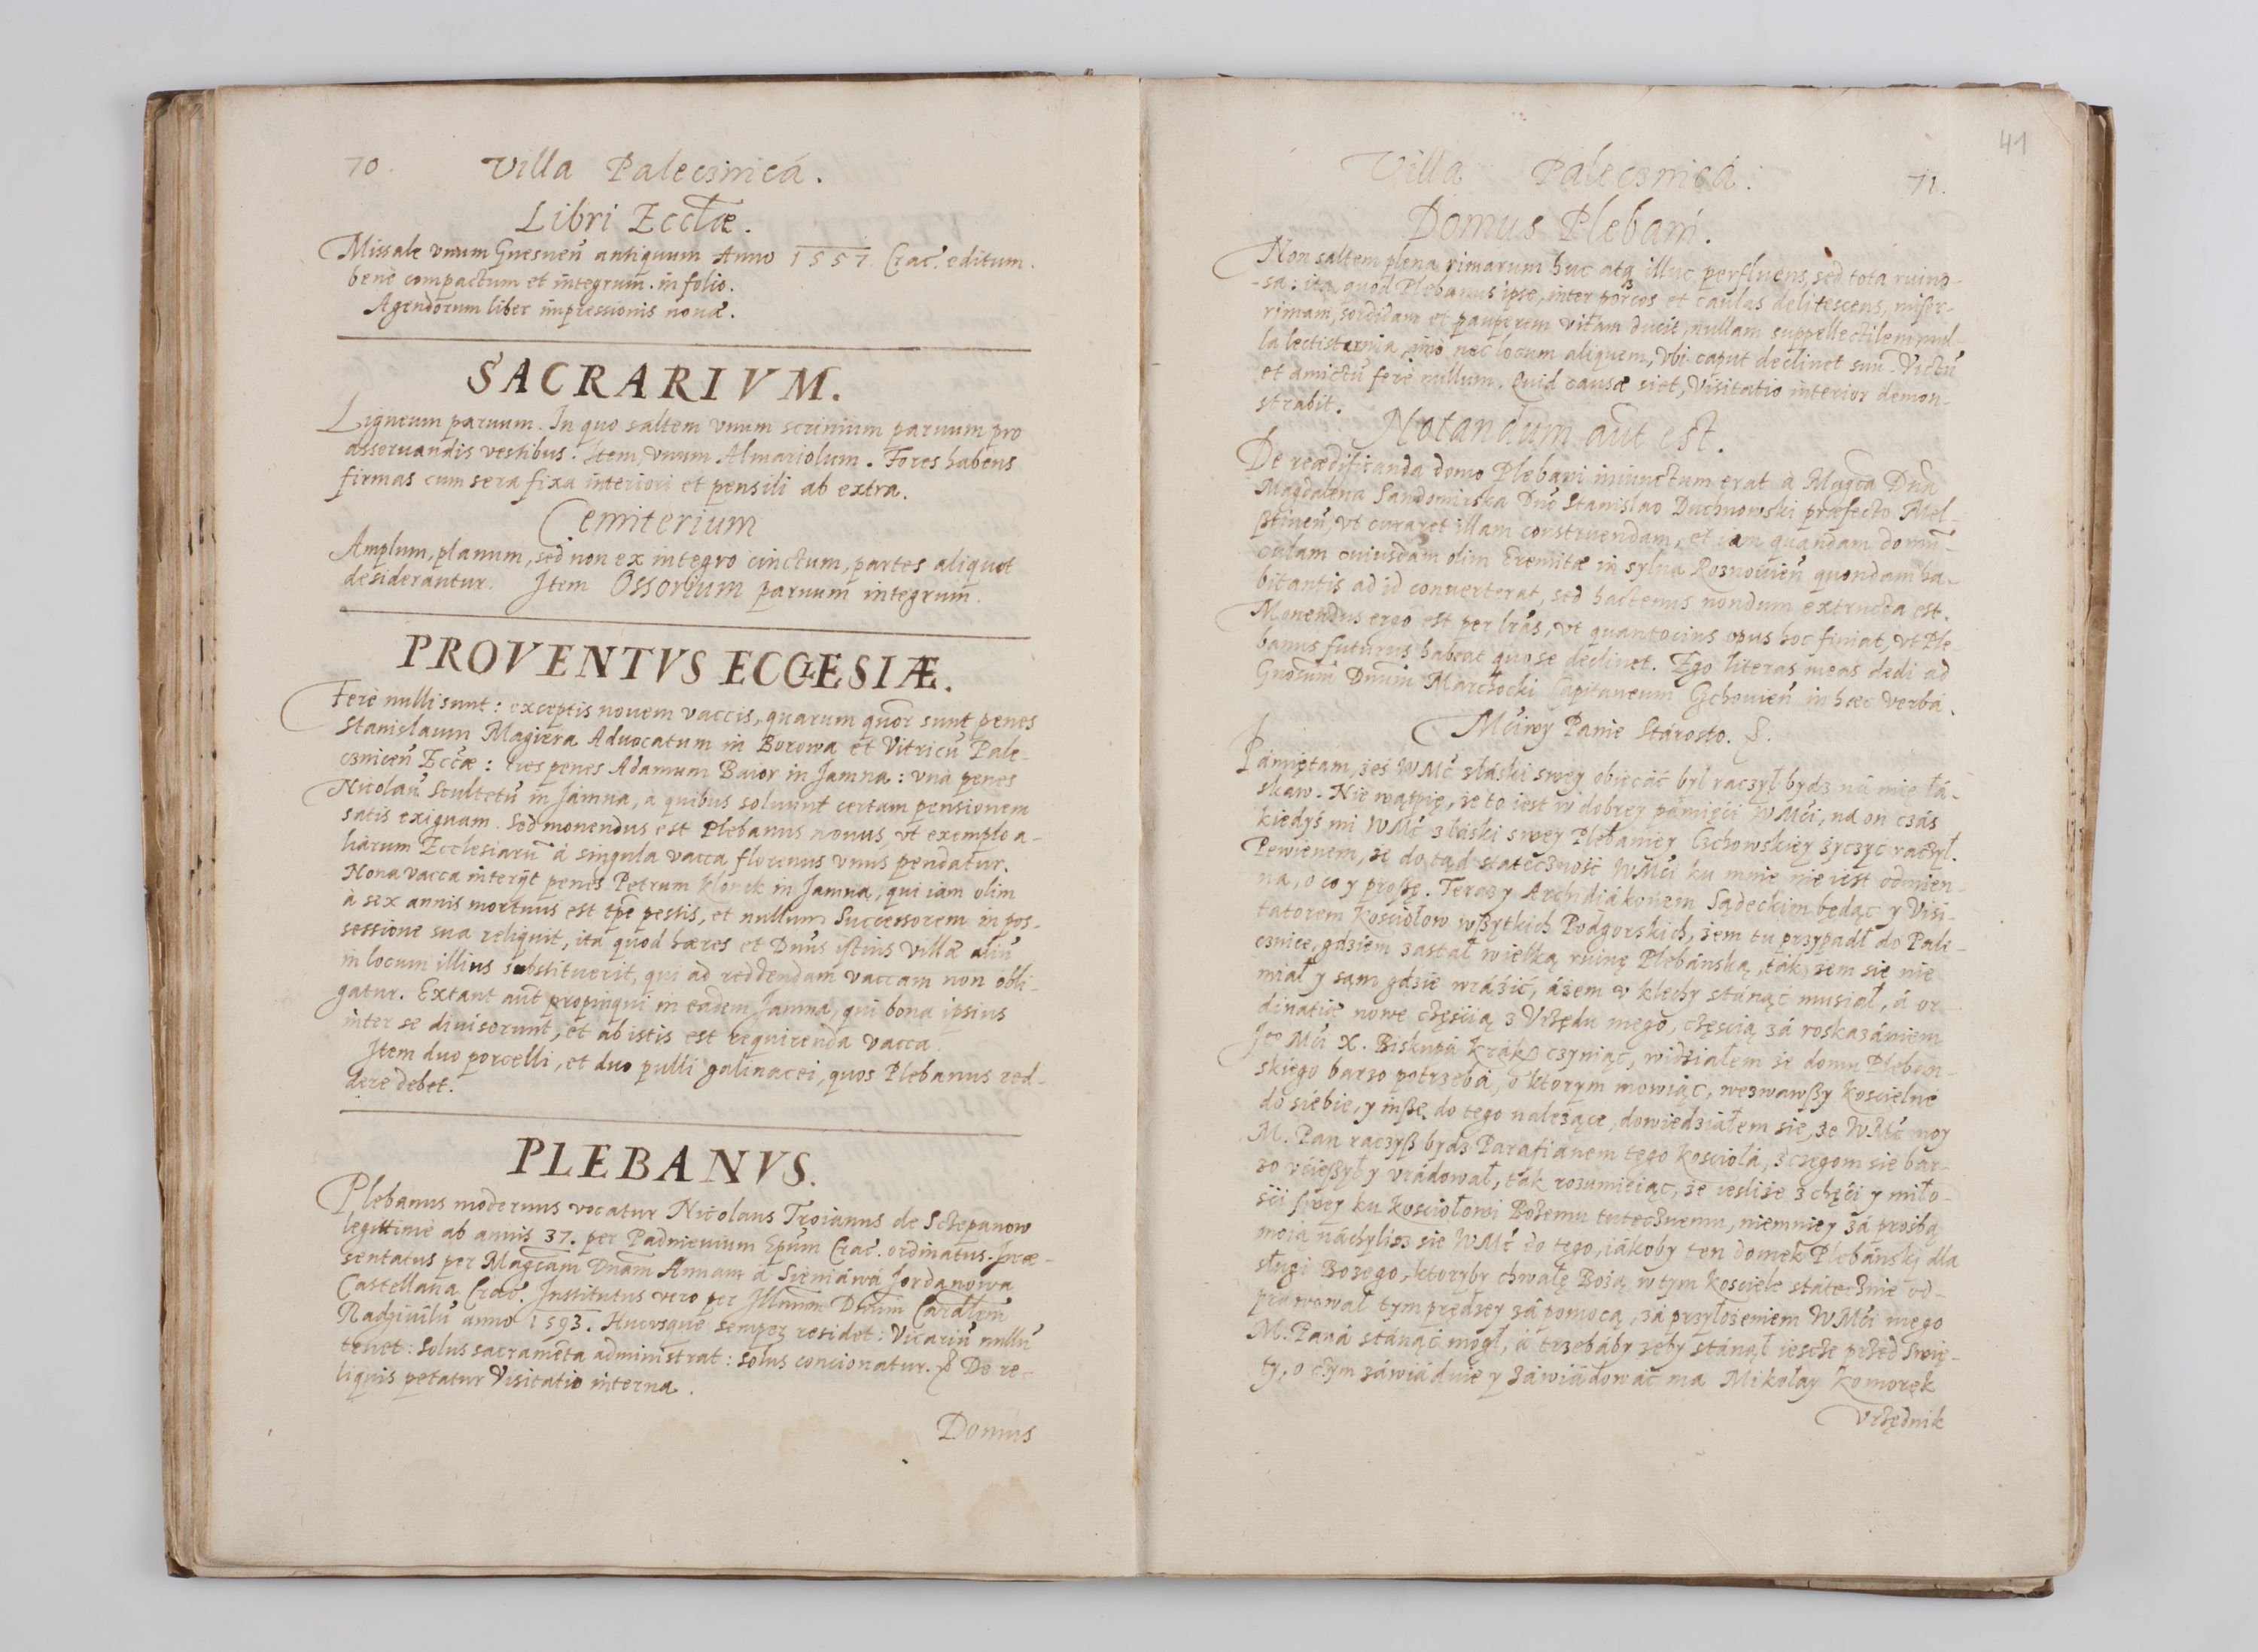 70. Villa Palecznica.
Libri Eccłæ.
Missale vnum Gnesnen̄ antiquum Anno 1557. Crac. editum.
benè compactum et integrum. in folio.
Agendorum liber impressionis nouæ.
SACRARIVM.
Ligneum paruum. In quo saltem vnum scrinium paruum pro
asseruandis vestibus. Item, vnum Almariolum. Fores habens
firmas cum sera fixa interiori et pensili ab extra.
Cemiterium
Amplum, planum, sed non ex integro cinctum, partes aliquot
desiderantur. Item Ossorium paruum integrum.
PROVENTVS ECCLESIÆ.
Ferè nulli sunt: exceptis nouem vaccis, quarum quor̄ sunt penes
Stanislaum Magiera Aduocatum in Borowa et Vitricū Pale-
cznicen̄ Eccæ: tres penes Adamum Baior in Jamna: vna penes
Nicolaū Scultetū in Jamna, à quibus soluunt certam pensionem
satis exiguam. Sed monendus est Plebanus nouus, vt exemplo a-
liarum Ecclesiarū à singula vacca florenus vnus pendatur.
Nona vacca interijt penes Petrum Klonek in Jamna, qui iam olim
à sex annis mortuus est tp̄e pestis, et nullum Successorem in pos-
sessione sua reliquit, ita quod hæres et Dnūs istius Villæ aliū
in locum illius substituerit, qui ad reddendam vaccam non obli-
gatur. Extant aūt propinqui in eadem Jamna, qui bona ipsius
inter se diuiserunt, et ab istis est requirenda vacca.
Item duo porcelli, et duo pulli galinacei, quos Plebanus red-
dere debet.
PLEBANVS.
Plebanus modernus vocatur Nicolaus Troianus de Sczepanow
legittimè ab annis 37. per Padnieuium Epūm Crac. ordinatus. Præ-
sentatus per Magcam Dnam Annam à Sieniáwá Jordanowa
Castellana Crac. Institutus vero per Illmum Dnum Cardlem
Radziuilū anno 1593. Hucusque semper residet: Vicariū nullū
tenet: Solus sacramēta administrat: solus concionatur. & De re-
liquis petatur Visitatio interna.
Domus
41
Villa Palecznicá. 71.
Domus Plebani.
Non saltem plena rimarum huc atq illuc perfluens, sed tota ruino-
-sa: ita quod Plebanus ipse, inter porcos et caulas delitescens, miser-
rimam, sordidam et pauperem vitam ducit, nullam suppellectilem, nul-
la lectisternia, imo nec locum aliquem, vbi caput declinet suū. Victū
et amictū ferè nullum. Quid causæ siet, Visitatio interior demon-
strabit.
Notandum aūt est.
De reædificanda domo Plebani iniunctum erat à Magca Dnā
Magdalena Sandomirska Dnō Stanislao Duchnowski præfecto Mel-
stinen̄, vt curaret illam construendam, et iam quandam domū-
culam cuiusdam olim Eremitæ in sylua Roznouien̄ quondam ha-
bitantis ad id conuerterat, sed hactenus nondum extructa est.
Monendus ergo est per lras, vt quantocius opus hoc finiat, vt Ple-
banus futurus habeat quo se declinet. Ego literas meas dedi ad
Gnosum Dnum Marchocki Capitaneum Czchouien̄ in hæc verba.
Mciwy Panie Stárosto. &.
Pámiętam, żeś WMć z łáski swey obiecáć był raczył bydz ná mię łá-
skaw. Nie wątpię, że to iest w dobrey pámięći WMći, ná on czás
kiedyś mi WMć z łáski swey Plebániey Czchowskiey życzyć raczył.
Pewienem, że do tąd státeczność WMći ku mnie nie iest odmien-
na, o co y proszę. Teraz y Archidiákonem Sądeckim będąc y Visi-
tatorem Kościołow wszytkich Podgorskich, żem tu przypadł do Pale-
cznice, gdziem zastał wielką ruinę Plebánską, ták żem się nie
miał y sąm gdzie wráźić, áżem v klechy stánąć musiał, á or-
dinatię nowe częścią z Vrzędu mego, częścią zá roskazániem
Jeo Mći X. Biskupá Krákō czyniąc, widziałem że domu Pleban-
skiego barzo potrzebá, o ktorym mowiąc, wezwawszy Kościelne
do siebie, y insze do tego należące, dowiedziałem sie, że WMć moy
M. Pan raczysz bydz Parafianem tego Kościoła, z czegom sie bar-
zo vćieszył y vrádował, ták rozumieiąc, że iesliże z chęći y miło-
śći swey ku Kościołowi Bożemu tutecznemu, niemniey zá prośbą
moią náchylisz sie WMć do tego, iákoby ten domek Plebánski dla
sługi Bozego, ktoryby chwałę Bożą w tym Kościele státecznie od-
prawował tym prędzey zá pomocą, zá przyłożeniem WMći mego
M. Paná stánąć mogł, á trzebáby żeby stánął iescze przed Swię-
ty, o czym záwiáduie y záwiádowáć ma Mikołay Komorek
Vrzędnik